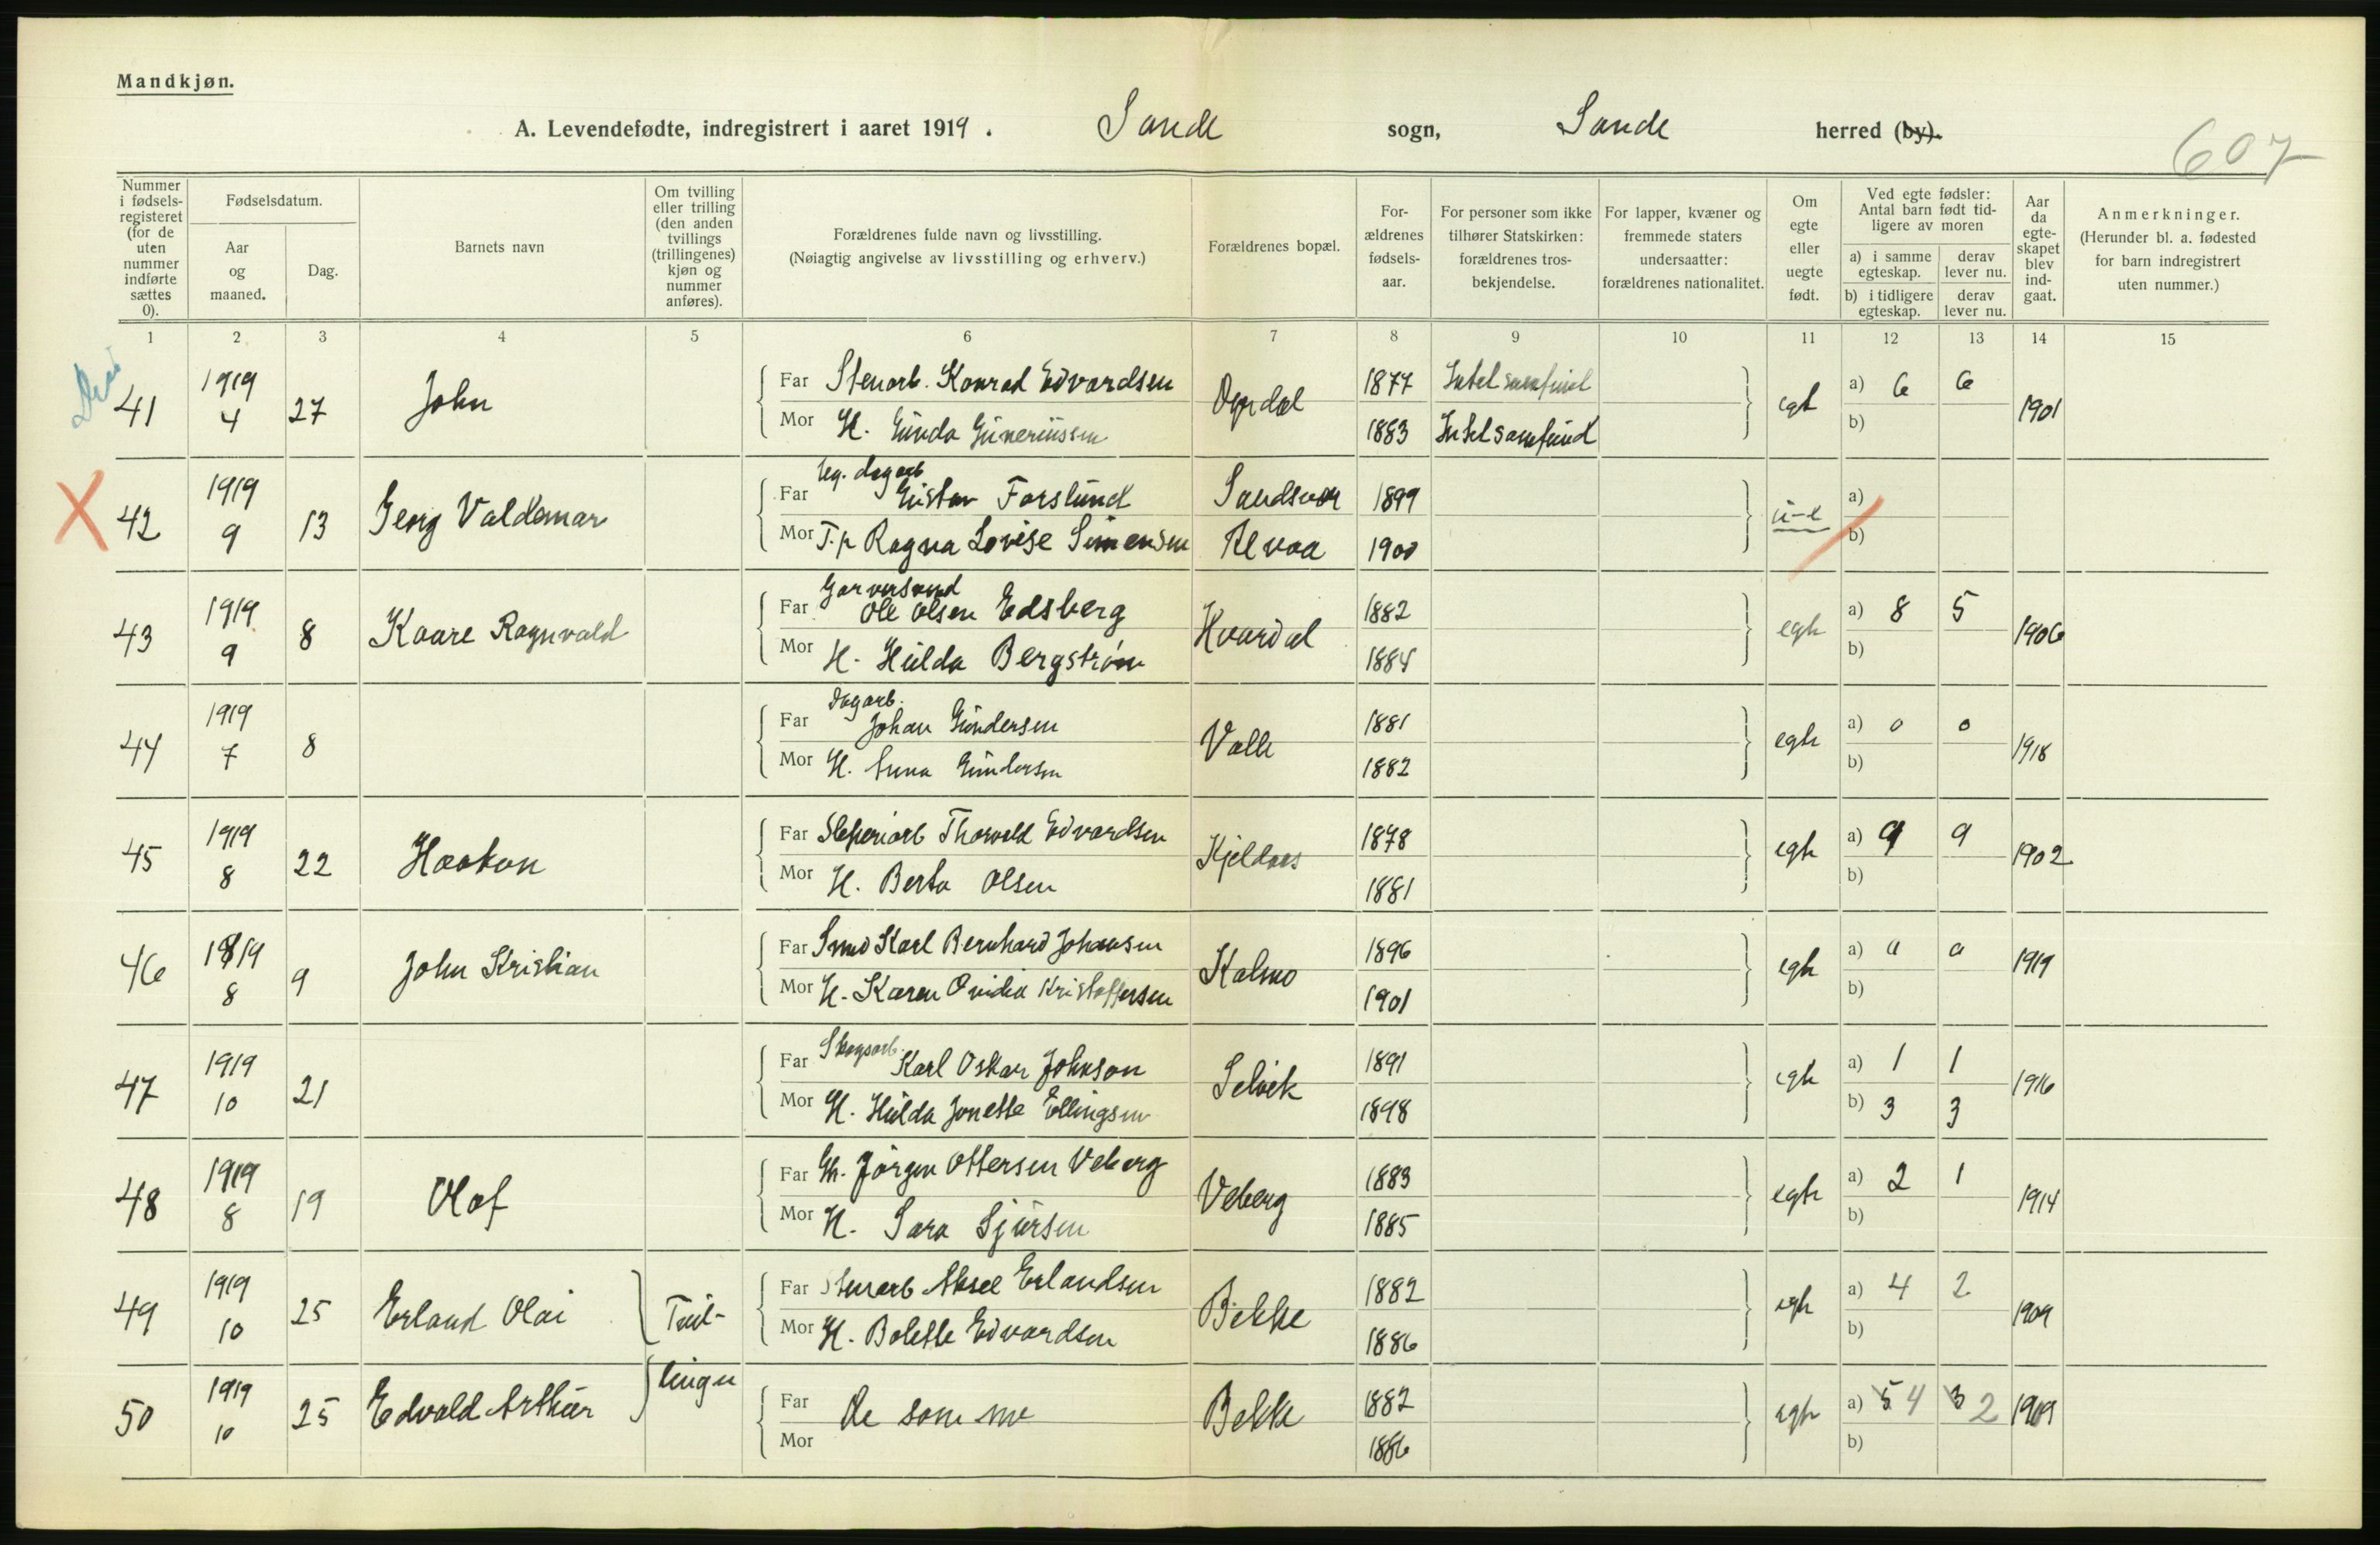 Mandkjøn.
A. Levendefødte, indregistrert i aaret 1919. Sande sogn, Sande herred (by).
607
Nummer i fødselsregisteret (for de uten nummer indførte sættes 0).
Fødselsdatum.
Aar og maaned.
Dag.
Barnets navn
Om tvilling eller trilling (den anden tvillings (trillingenes) kjøn og nummer anføres).
Forældrenes fulde navn og livsstilling.
(Nøiagtig angivelse av livsstilling og erhverv.)
Forældrenes bopæl.
Forældrenes fødselsaar.
For personer som ikke tilhører Statskirken: forældrenes trosbekjendelse.
For lapper, kvæner og fremmede staters undersaatter: forældrenes nationalitet.
Om egte eller uegte født.
Ved egte fødsler: Antal barn født tidligere av moren
a) i samme egteskap. derav lever nu.
b) i tidligere egteskap. derav lever nu.
Aar da egteskapet blev indgaat.
Anmerkninger.
(Herunder bl. a. fødested for barn indregistrert uten nummer.)
1 2 3 4 5 6 7 8 9 10 11 12 13 14 15
41 1919 4 27 John
Far Stenarb. Konrad Edvardsen 1877
Mor H. Gunda Guneriussen 1883 Intet samfund
egte a) 6 6 b) 1901
X 42 1919 9 13 Georg Valdemar
Far Ug. dagarb Gustav Forslund Sandsvær 1899
Mor T.p Ragna Lovise Simensen Revaa 1900
u-e a) b)
43 1919 9 8 Kaare Ragnvald
Far Garversvend Ole Olsen Edsberg Hvardal 1882
Mor H. Hulda Bergstrøm 1884
egte a) 8 5 b) 1906
44 1919 7 8
Far Dagarb. Johan Gundersen Valle 1881
Mor H. Anna Gundersen 1882
egte a) 0 0 b) 1918
45 1919 8 22 Haakon
Far Thorvald Edvardsen Kjeldaas 1878
Mor H. Berta Olsen 1881
egte a) 9 9 b) 1902
46 1919 8 9 John Kristian
Far Smed Karl Bernhard Johansen 1896
Mor H. Karen Ovidia Kristoffersen 1901
egte a) 0 0 b) 1919
47 1919 10 21
Far Skogsarb. Karl Oskar Johnson Selvik 1891
Mor H. Hulda Jonette Ellingsen 1898
egte a) 1 1 b) 3 3 1916
48 1919 8 19 Olaf
Far Gb. Jörgen Ottersen Veberg Veberg 1883
Mor H. Sara Sjursen 1885
egte a) 2 1 b) 1914
49 1919 10 25 Erland Olai Tvil-
Far Stenarb Aksel Erlandsen Bekke 1882
Mor H. Bolette Edvardsen 1886
egte a) 4 2 b) 1909
50 1919 10 25 Edvald Arthur linger
Far De samme Bekke 1882
Mor 1886
egte a) 5 4 3 2 b) 1909